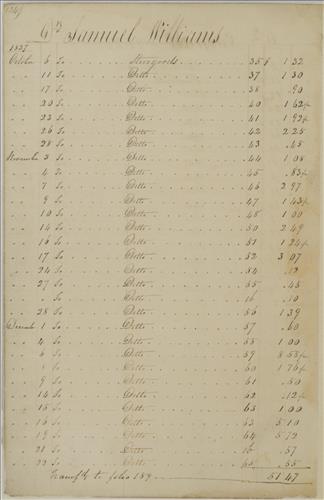 Dr Samuel Williams
1837
October 6 To Storegoods 35 & 1 32
11 To Ditto 37 1 30
17 To Ditto 38 .90
20 To Ditto 40 1 62½
22 To Ditto 41 1 92½
26 To Ditto 42 2 25
28 To Ditto 43 .45
November 3 To Ditto 44 1 08
4 To Ditto 45 .83½
7 To Ditto 46 2 97
9 To Ditto 47 1 43½
10 To Ditto 48 1 00
14 To Ditto 50 2 49
16 To Ditto 51 1 24½
17 To Ditto 52 3 07
24 To Ditto 54 .12
27 To Ditto 55 .45
To Ditto 16 .10
28 To Ditto 56 1 39
Decemb 1 To Ditto 57 .60
4 To Ditto 58 1 00
6 To Ditto 59 8 58½
To Ditto 60 1 76½
9 To Ditto 61 .50
14 To Ditto 62 .12½
15 To Ditto 63 1 00
16 To Ditto 63 5 10
19 To Ditto 64 5 72
21 To Ditto 16 .57
22 To Ditto 65 .55
Transfd to folio 189 51 47